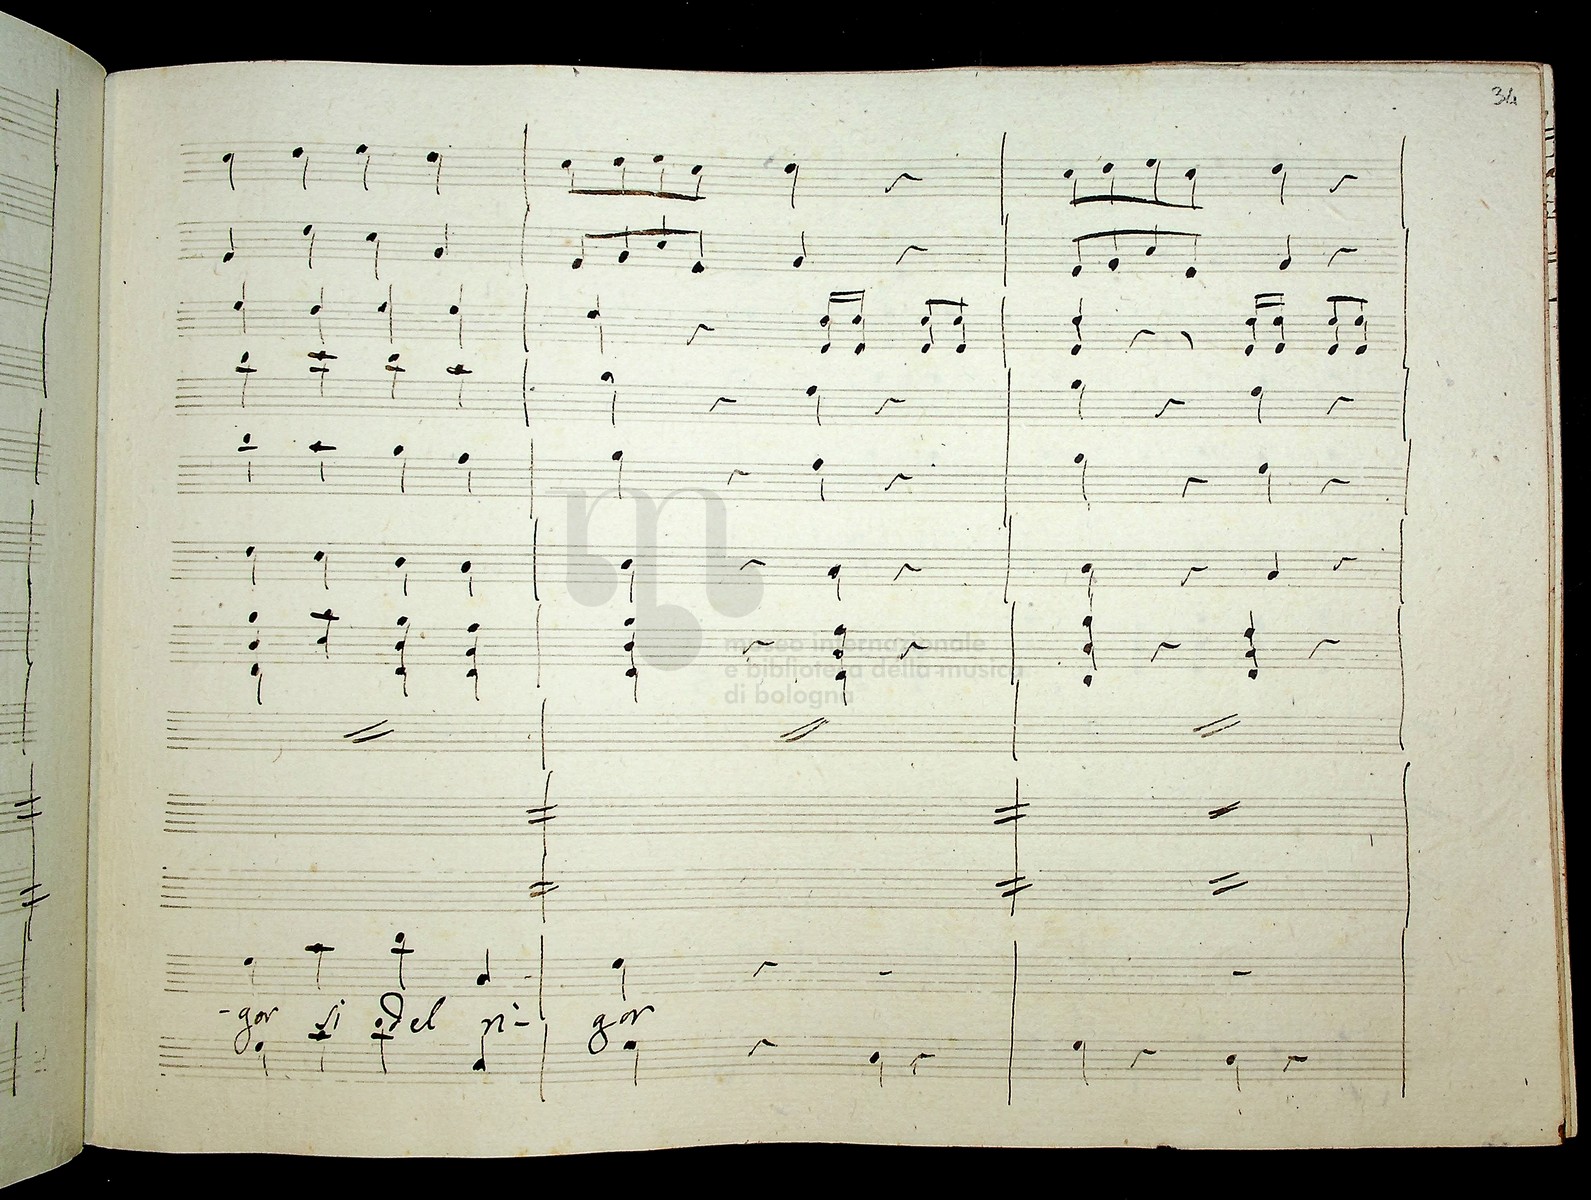 34
museo internazionale
e biblioteca della musica
di bologna
-gor si del ri- gor